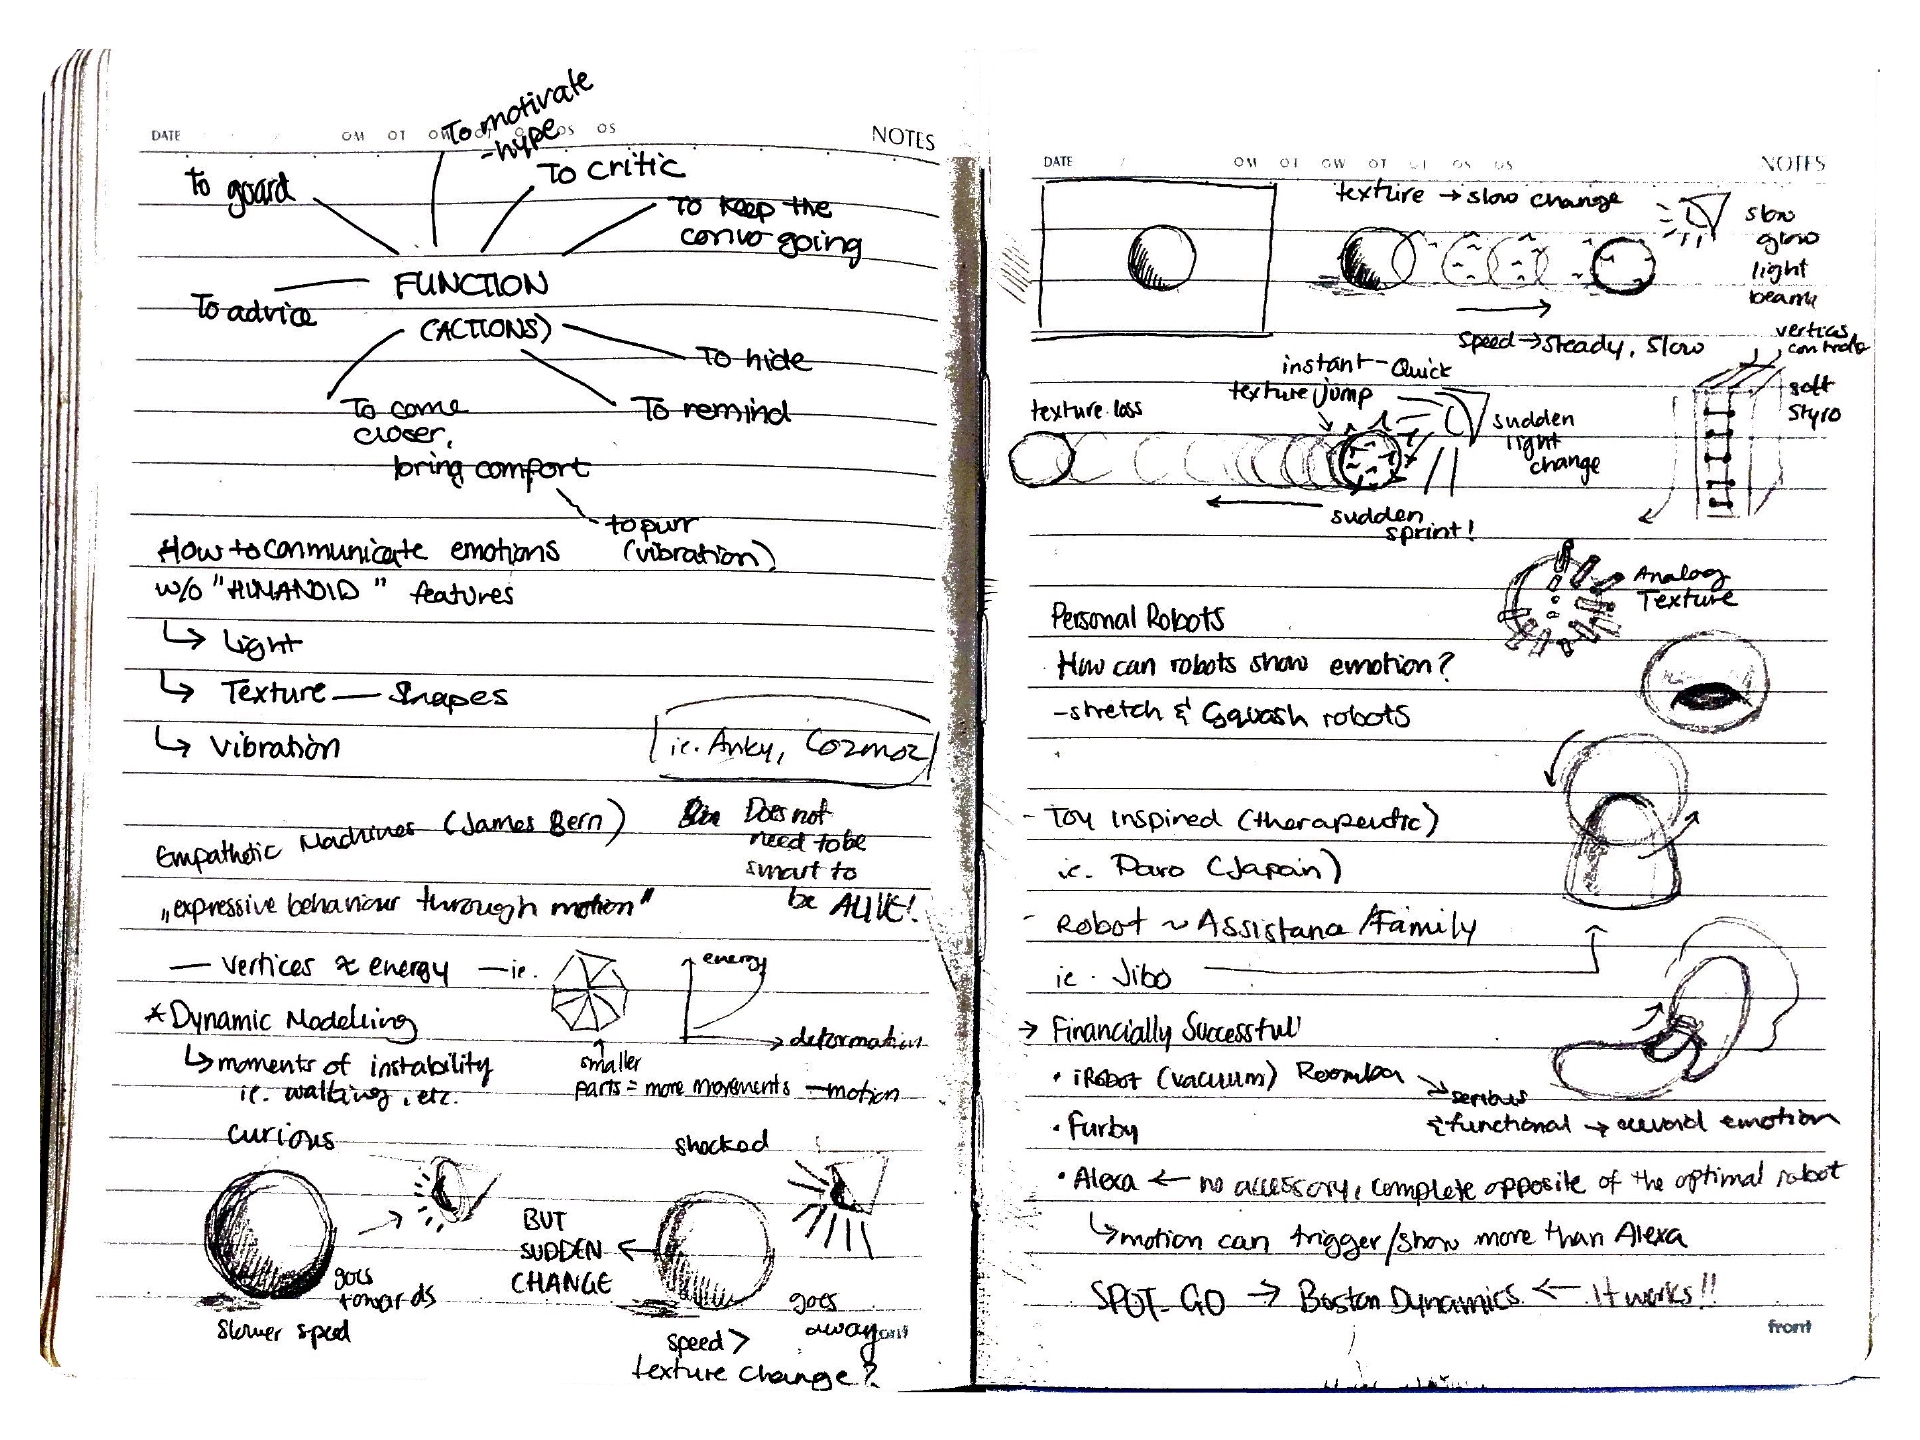 DATE
NOTES
To motivate
-hype
To guard
To critic
To keep the
convo going
FUNCTION
(ACTIONS)
To advice
To hide
To come
closer,
bring comfort
To remind
to purr
(vibration)
How to communicate emotions
w/o "HUMANOID" features
↳ Light
↳ Texture — Shapes
↳ vibration
ie. Anky, Cozmoz
Empathetic Machines (James Bern)
Does not
need to be
smart to
be ALIVE!
„expressive behaviour through motion"
— vertices ≈ energy — ie.
energy
deformation
* Dynamic Modelling
↳ moments of instability
ie. walking, etc.
smaller
parts = more movements — motion
curious
goes
towards
slower sped
BUT
SUDDEN
CHANGE
shocked
goes
away
speed >
texture change?
DATE
NOTES
texture → slow change
slow
glow
light
beam
speed → steady, slow
vertices
controls
soft
styro
instant - Quick
texture jump
texture loss
sudden
light
change
sudden
sprint!
Analog
Texture
Personal Robots
How can robots show emotion?
- stretch & Squash robots
- Toy Inspired (therapeutic)
ie. Paro (Japan)
- Robot ~ Assistana /Family
ie. Jibo
→ Financially Successful
• iRobot (vacuum) Roomba
serious
& functional → avoid emotion
• Furby
• Alexa ← no accessory, complete opposite of the optimal robot
↳ motion can trigger/show more than Alexa
SPOT-GO → Boston Dynamics ← It works!!
front